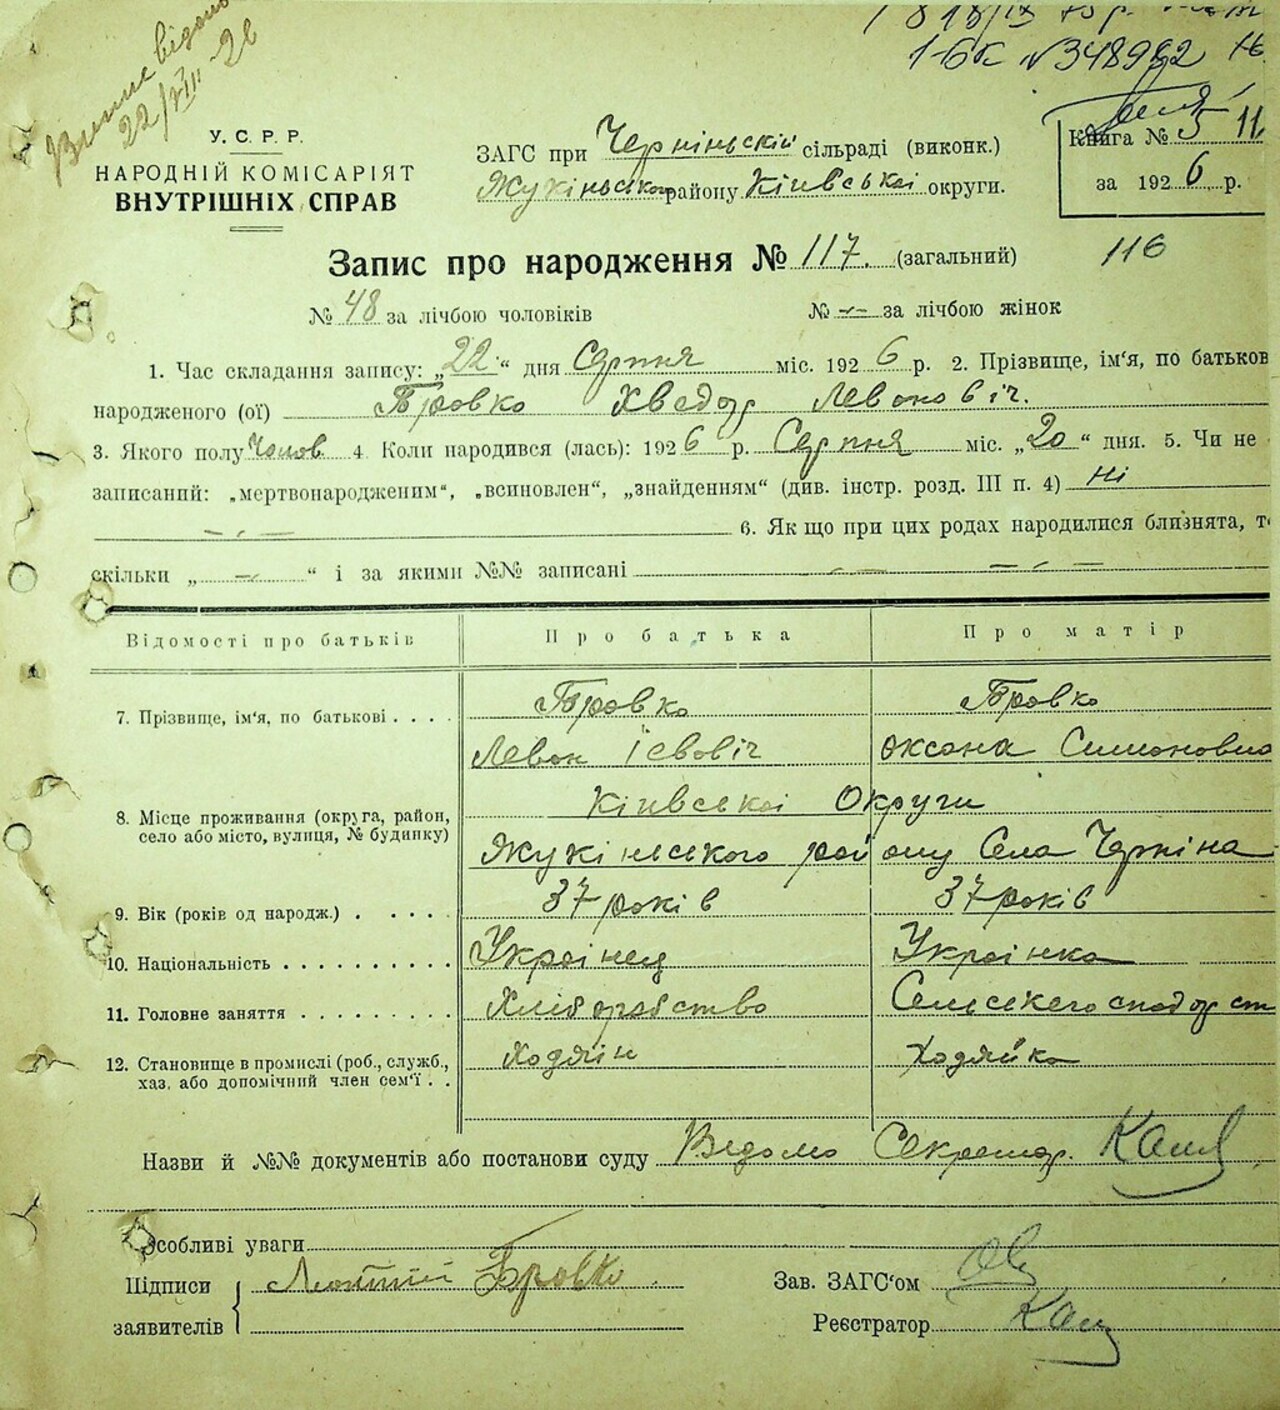 22/VIII-26
1-бк №348982
У.С.Р.Р.
НАРОДНІЙ КОМІСАРІЯТ
ВНУТРІШНІХ СПРАВ
ЗАГС при Черніньскій сільраді (виконк.)
Жукіньського району Київської округи.
Книга № 5 11
за 1926 р.
Запис про народження № 117. (загальний) 116
№ 48 за лічбою чоловіків № -- за лічбою жінок
1. Час складання запису: „22“ дня Серпня міс. 1926 р. 2. Прізвище, ім'я, по батьков
народженого (ої) Бровко Хведор Левонович.
3. Якого полу Чолов 4. Коли народився (лась): 1926 р. Серпня міс. „20“ дня. 5. Чи не
записаний: „мертвонародженим“, „всиновлен“, „знайденням“ (див. інстр. розд. III п. 4) ні
6. Як що при цих родах народилися близнята, т
скільки „ -- “ і за якими №№ записані
Відомості про батьків Про батька Про матір
7. Прізвище, ім'я, по батькові . . . . Бровко Бровко
Левон Оксана Симоновна
8. Місце проживання (округа, район, село або місто, вулиця, № будинку) Київської Округи
Жукінського району Села Черніна
9. Вік (років од народж.) . . . . . 37 років 37 років
10. Національність . . . . . . . . . . Українец Українка
11. Головне заняття . . . . . . . . . Хліборобство
12. Становище в промислі (роб., служб., Ходяін Ходяйка
хаз. або допомічний член сем'ї . .
Назви й №№ документів або постанови суду Відомо Секретар.
Особливі уваги
Підписи Бровко Зав. ЗАГС'ом
заявителів Реєстратор